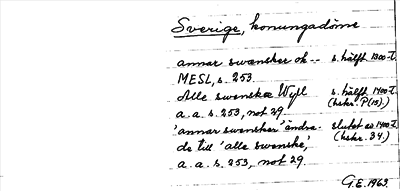 Sverige, konungadöme
annar swænsker ok -- s. hälft 1300-t.
MESL, s. 253.
Alle swenske s. hälft. 1400-t.
a.a. s. 253, not 29. (hskr. P(15).)
'annar swensker' ändra- slutet av 1400-t.
de till 'alle swenske', (hskr. 34.)
a.a. s. 253, not 29.
G.E. 1963.